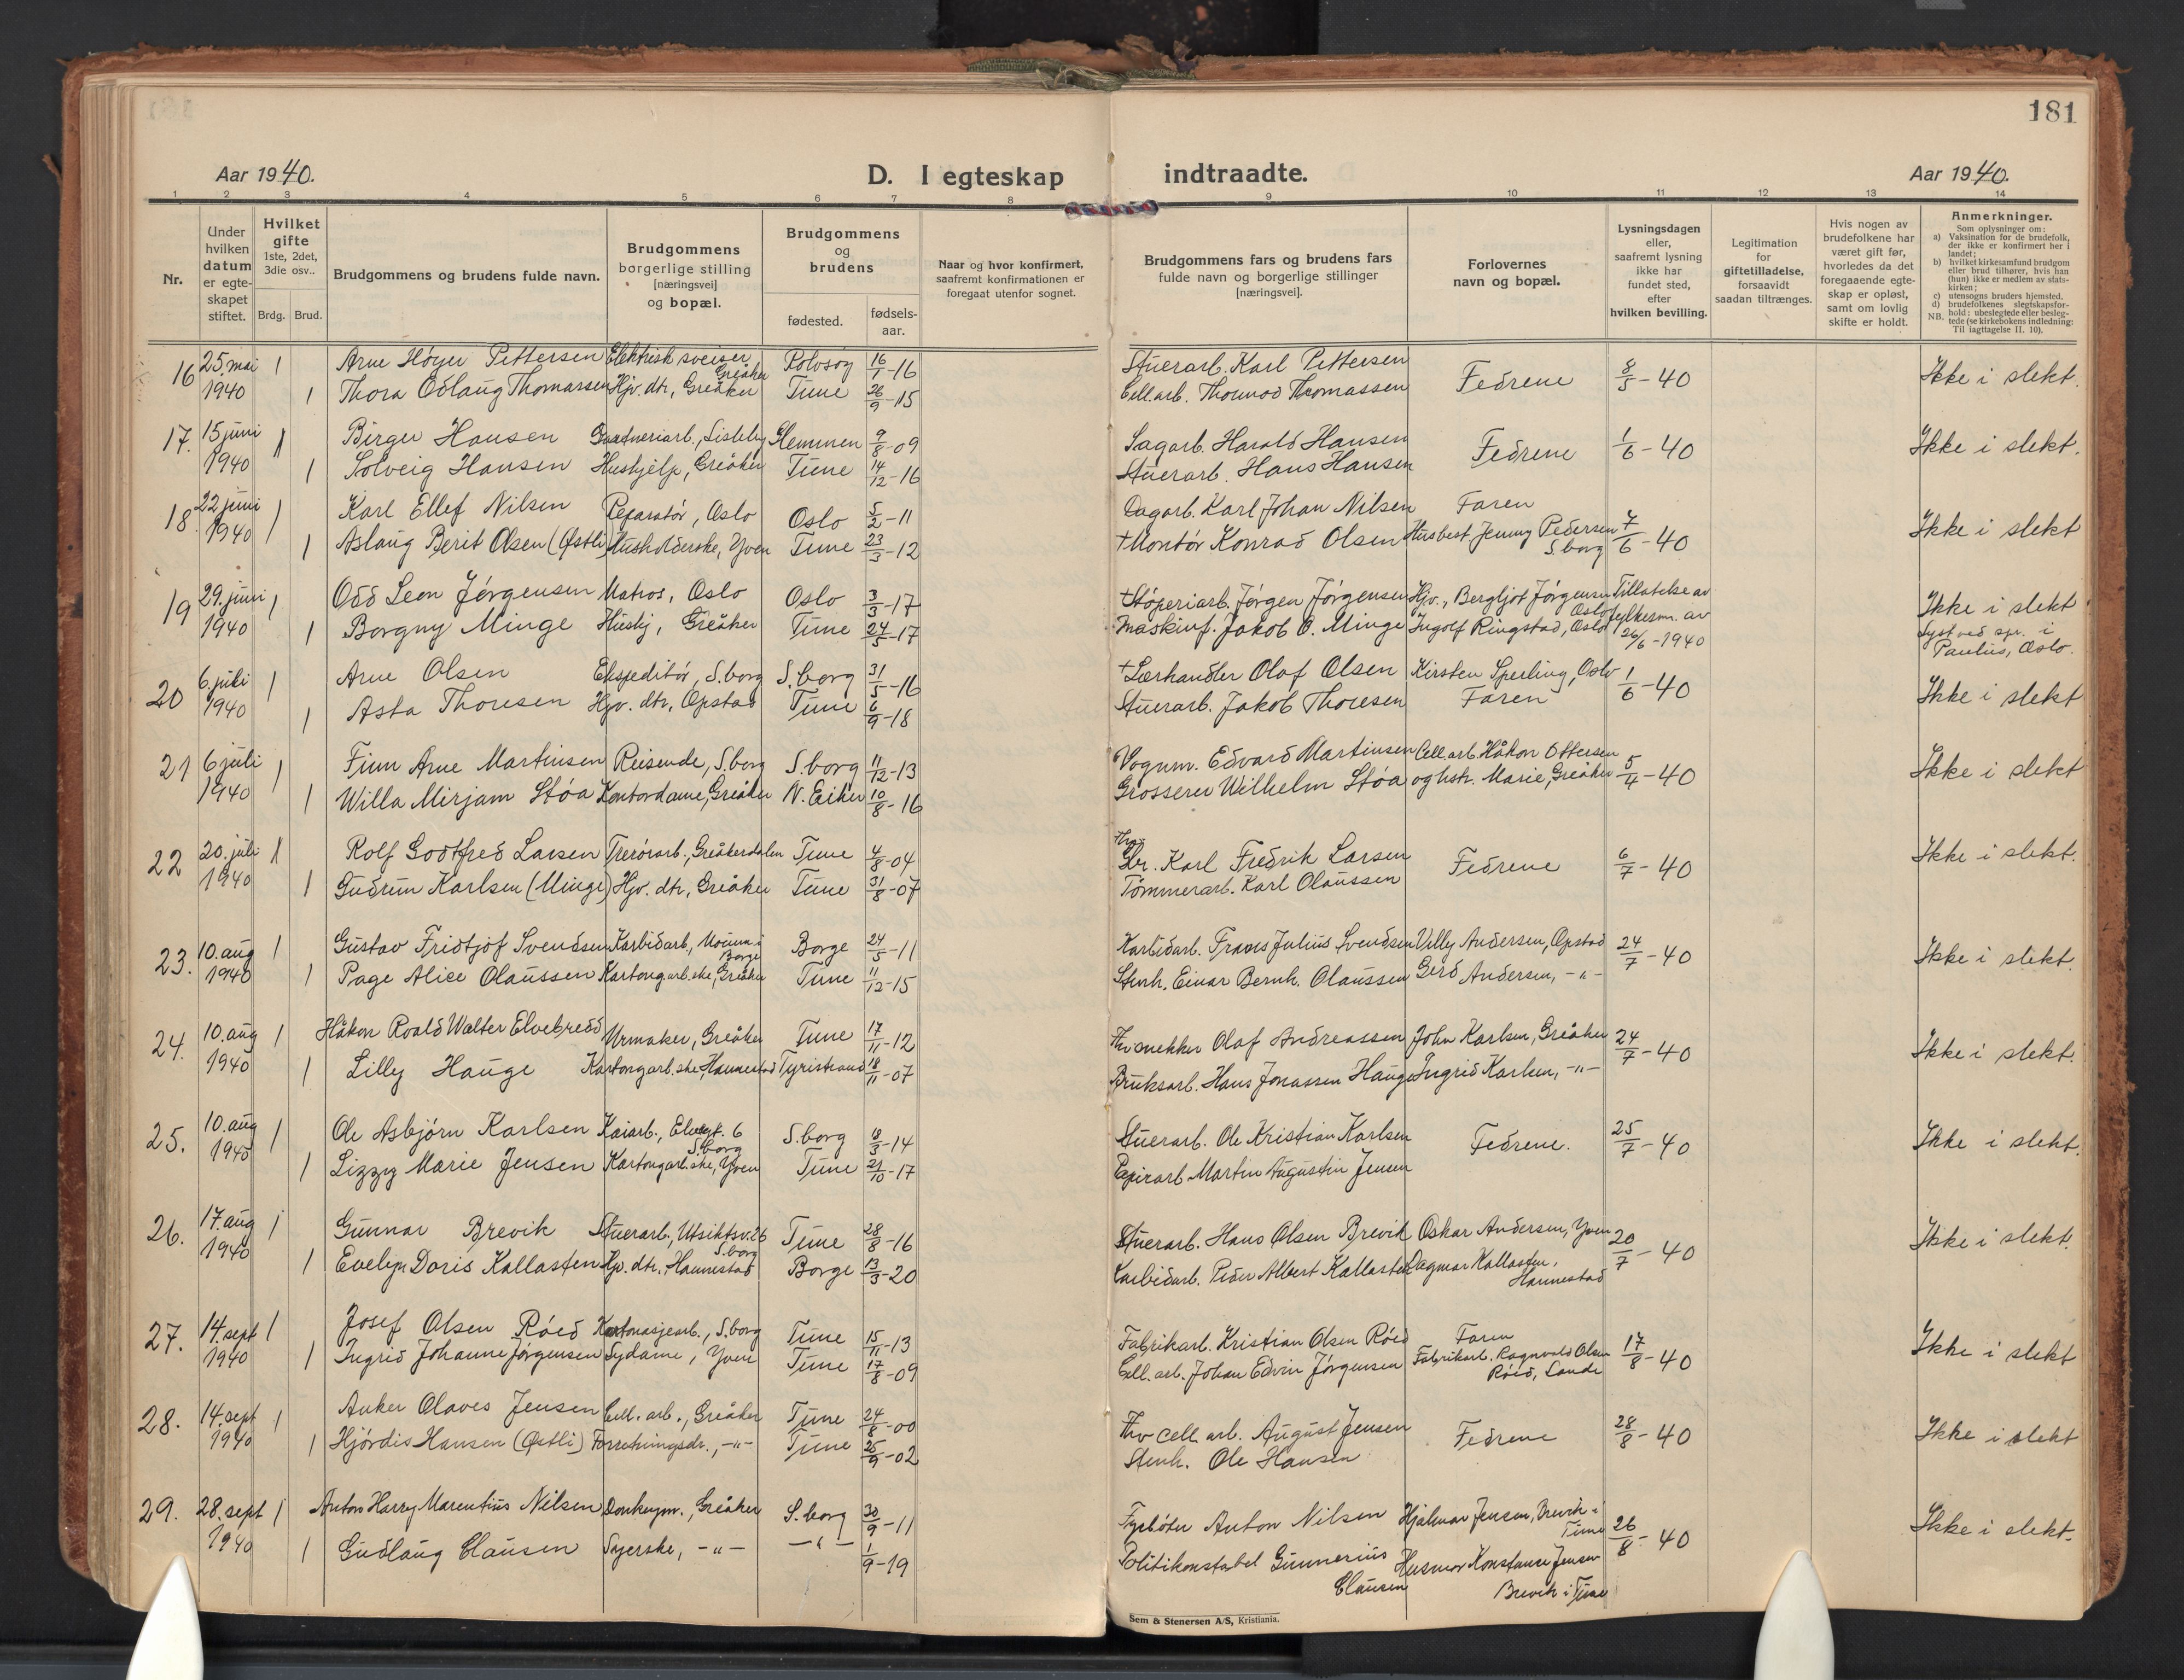 181
Aar 1940.
D. I egteskap indtraadte.
Aar 1940.
1 2 3 4 5 6 7 8 9 10 11 12 13 14
Nr.
Under hvilken datum er egte-skapet stiftet.
Hvilket gifte 1ste, 2det, 3die osv..
Brdg. Brud.
Brudgommens og brudens fulde navn.
Brudgommens borgerlige stilling [næringsvei] og bopæl.
Brudgommens og brudens
fødested. fødsels-aar.
Naar og hvor konfirmert, saafremt konfirmationen er foregaat utenfor sognet.
Brudgommens fars og brudens fars fulde navn og borgerlige stillinger [næringsvei].
Forlovernes navn og bopæl.
Lysningsdagen eller, saafremt lysning ikke har fundet sted, efter hvilken bevilling.
Legitimation for giftetilladelse, forsaavidt saadan tiltrænges.
Hvis nogen av brudefolkene har været gift før, hvorledes da det foregaaende egte-skap er opløst, samt om lovlig skifte er holdt.
Anmerkninger.
Som oplysninger om:
a) Vaksination for de brudefolk, der ikke er konfirmert her i landet;
b) hvilket kirkesamfund brudgom eller brud tilhører, hvis han (hun) ikke er medlem av stats-kirken;
c) utensogns bruders hjemsted.
d) brudefolkenes slegtskapsfor-hold: ubeslegtede eller besleg-tede (se kirkebokens indledning:
NB. Til iagttagelse II. 10).
16 25. mai 1 Arne Höyer Pettersen Elektrisk sveiser, Greåker Rolvsöy 16/1-16 Stuerarb. Karl Pettersen Fedrene 8/5-40 Ikke i slekt.
1940 1 Thora Odlaug Thomassen Hjv. dtr, Greåker Tune 26/9-15 Cell.arb. Thormod Thomassen
17. 15 juni 1 Birger Hansen Gartneriarb., Lisleby Glemmen 9/8-09 Sagarb. Harald Hansen Fedrene 1/6-40 Ikke i slekt.
1940 1 Solveig Hansen Hushjelp, Greåker Tune 14/12-16 Stuerarb. Hans Hansen
18. 22 juni 1 Karl Ellef Nilsen Reparatör, Oslo Oslo 5/2-11 Dagarb. Karl Johan Nilsen Faren 7/6-40 Ikke i slekt
1940 1 Aslaug Berit Olsen (Østli) Husholderske, Yven Tune 23/3-12 †Montör Konrad Olsen Husbest Jenny Pedersen S.borg
19 29. juni 1 Odd Leon Jörgensen Matros, Oslo Oslo 3/3-17 †Stöperiarb. Jörgen Jörgensen Hjv., Bergljot Jörgensen Oslo Tillatelse av fylkesm. av 26/6-1940 Ikke i slekt
1940 1 Borgny Minge Hushj, Greåker Tune 24/5-17 Maskinf. Jakob O. Minge Ingolf Ringstad, Oslo Lyst ved spr. i Paulus, Oslo.
20 6. juli 1 Arne Olsen Ekspeditör, S.borg S.borg 31/5-16 †Lærhandler Olaf Olsen Kirsten Sperling, Oslo 1/6-40 Ikke i slekt
1940 1 Asta Thoresen Hjv. dtr, Opstad Tune 6/9-18 Stuerarb. Jakob Thoresen Faren
21 6 juli 1 Finn Arne Martinsen Reisende, S.borg S.borg 11/12-13 Vognm. Edvard Martinsen Cell.arb Håkon Ottersen 5/4-40 Ikke i slekt
1940 1 Willa Mirjam Stóa Kontordame, Greåker N. Eiker 10/8-16 Grosserer Wilhelm Stóa og hstr. Marie, Greåker
22 20. juli 1 Rolf Godtfred Larsen Trerörarb., Greåkerdalen Tune 4/8-04 Karl Fredrik Larsen Fedrene 6/7-40 Ikke i slekt.
1940 1 Gudrun Karlsen (Minge) Hjv. dtr, Greåker Tune 31/8-07 Tömmerarb. Karl Olaussen
23. 10. aug 1 Gustav Fridtjof Svendsen Karbidarb, Moum i Borge Borge 24/5-11 Karbidarb. Frans Julius Svendsen Villy Andersen, Opstad 24/7-40 Ikke i slekt.
1940 1 Page Alice Olaussen Kartongarb.ske, Greåker Tune 11/12-15 Stenh. Einar Bernh. Olaussen Gerd Andersen, -"-
24. 10. aug 1 Håkon Roald Walter Elvebredd Urmaker, Greåker Tune 17/11-12 Fhv snekker Olaf Andreassen John Karlsen, Greåker 24/7-40 Ikke i slekt.
1940 1 Lilly Hauge Kartongarb.ske, Hannestad Tyristrand 18/11-07 Bruksarb. Hans Jonassen Hauge Ingrid Karlsen, -"-
25. 10. aug 1 Ole Asbjörn Karlsen Kaiarb., Elvegt. 6 S.borg S.borg 8/3-14 Stuerarb. Ole Kristian Karlsen Fedrene. 25/7-40 Ikke i slekt.
1940 1 Lizzy Marie Jensen Kartongarb.ske, Yven Tune 21/10-17 Papirarb Martin Augustin Jensen
26. 17. aug 1 Gunnar Brevik Stuerarb., Utsiktsv. 26 S.borg Tune 28/8-16 Stuerarb. Hans Olsen Brevik Oskar Andersen, Yven 20/7-40 Ikke i slekt.
1940 1 Evelyn Doris Kallasten Hjv. dtr., Hannestad Borge 13/3-20 Karbidarb. Peder Albert Kallasten Dagmar Kallasten, Hannestad
27. 14. sept 1 Josef Olsen Röed Kartonasjearb., S.borg Tune 15/11-13 Fabrikarb. Kristian Olsen Röed Faren 17/8-40 Ikke i slekt
1940 1 Ingrid Johanne Jörgensen Sydame, Yven Tune 17/8-09 Cell. arb. Johan Edvin Jörgensen Fabrikarb. Ragnvald Olsen Röed, Sande
28. 14. sept 1 Anker Olaves Jensen Cell. arb., Greåker Tune 24/8-00 Fhv cell. arb. August Jensen Fedrene 28/8-40 Ikke i slekt
1940 1 Hjördis Hansen (Østli) Forretningsdr., -"- Tune 25/9-02 Stenh. Ole Hansen
29. 28. sept 1 Anton Harry Marentius Nilsen Donkeym., Greåker S.borg 30/9-11 Fyrböter Anton Nilsen Hjalmar Jensen, Brevik i Tune 26/8-40 Ikke i slekt.
1940 1 Gudlaug Clausen Syerske, -"- -"- 1/9-19 Politikonstabel Gunnerius Clausen Husmor Konstance Jensen Brevik i Tune
Sem & Stenersen A/S, Kristiania.